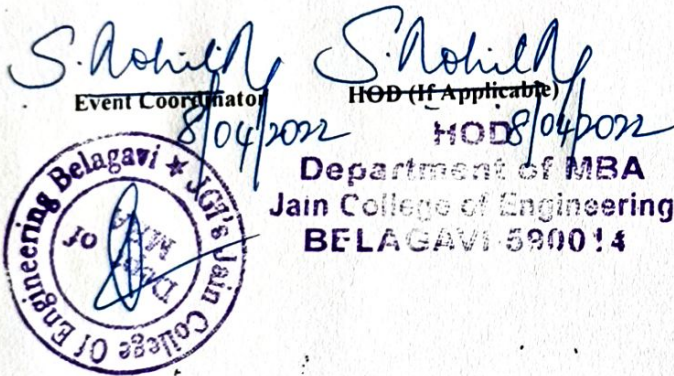 Event Coordinator
8/04/2022
HOD (If Applicable)
8/04/2022
HOD
Department of MBA
Jain College of Engineering
BELAGAVI-590014
JGI's Jain College Of Engineering Belagavi *